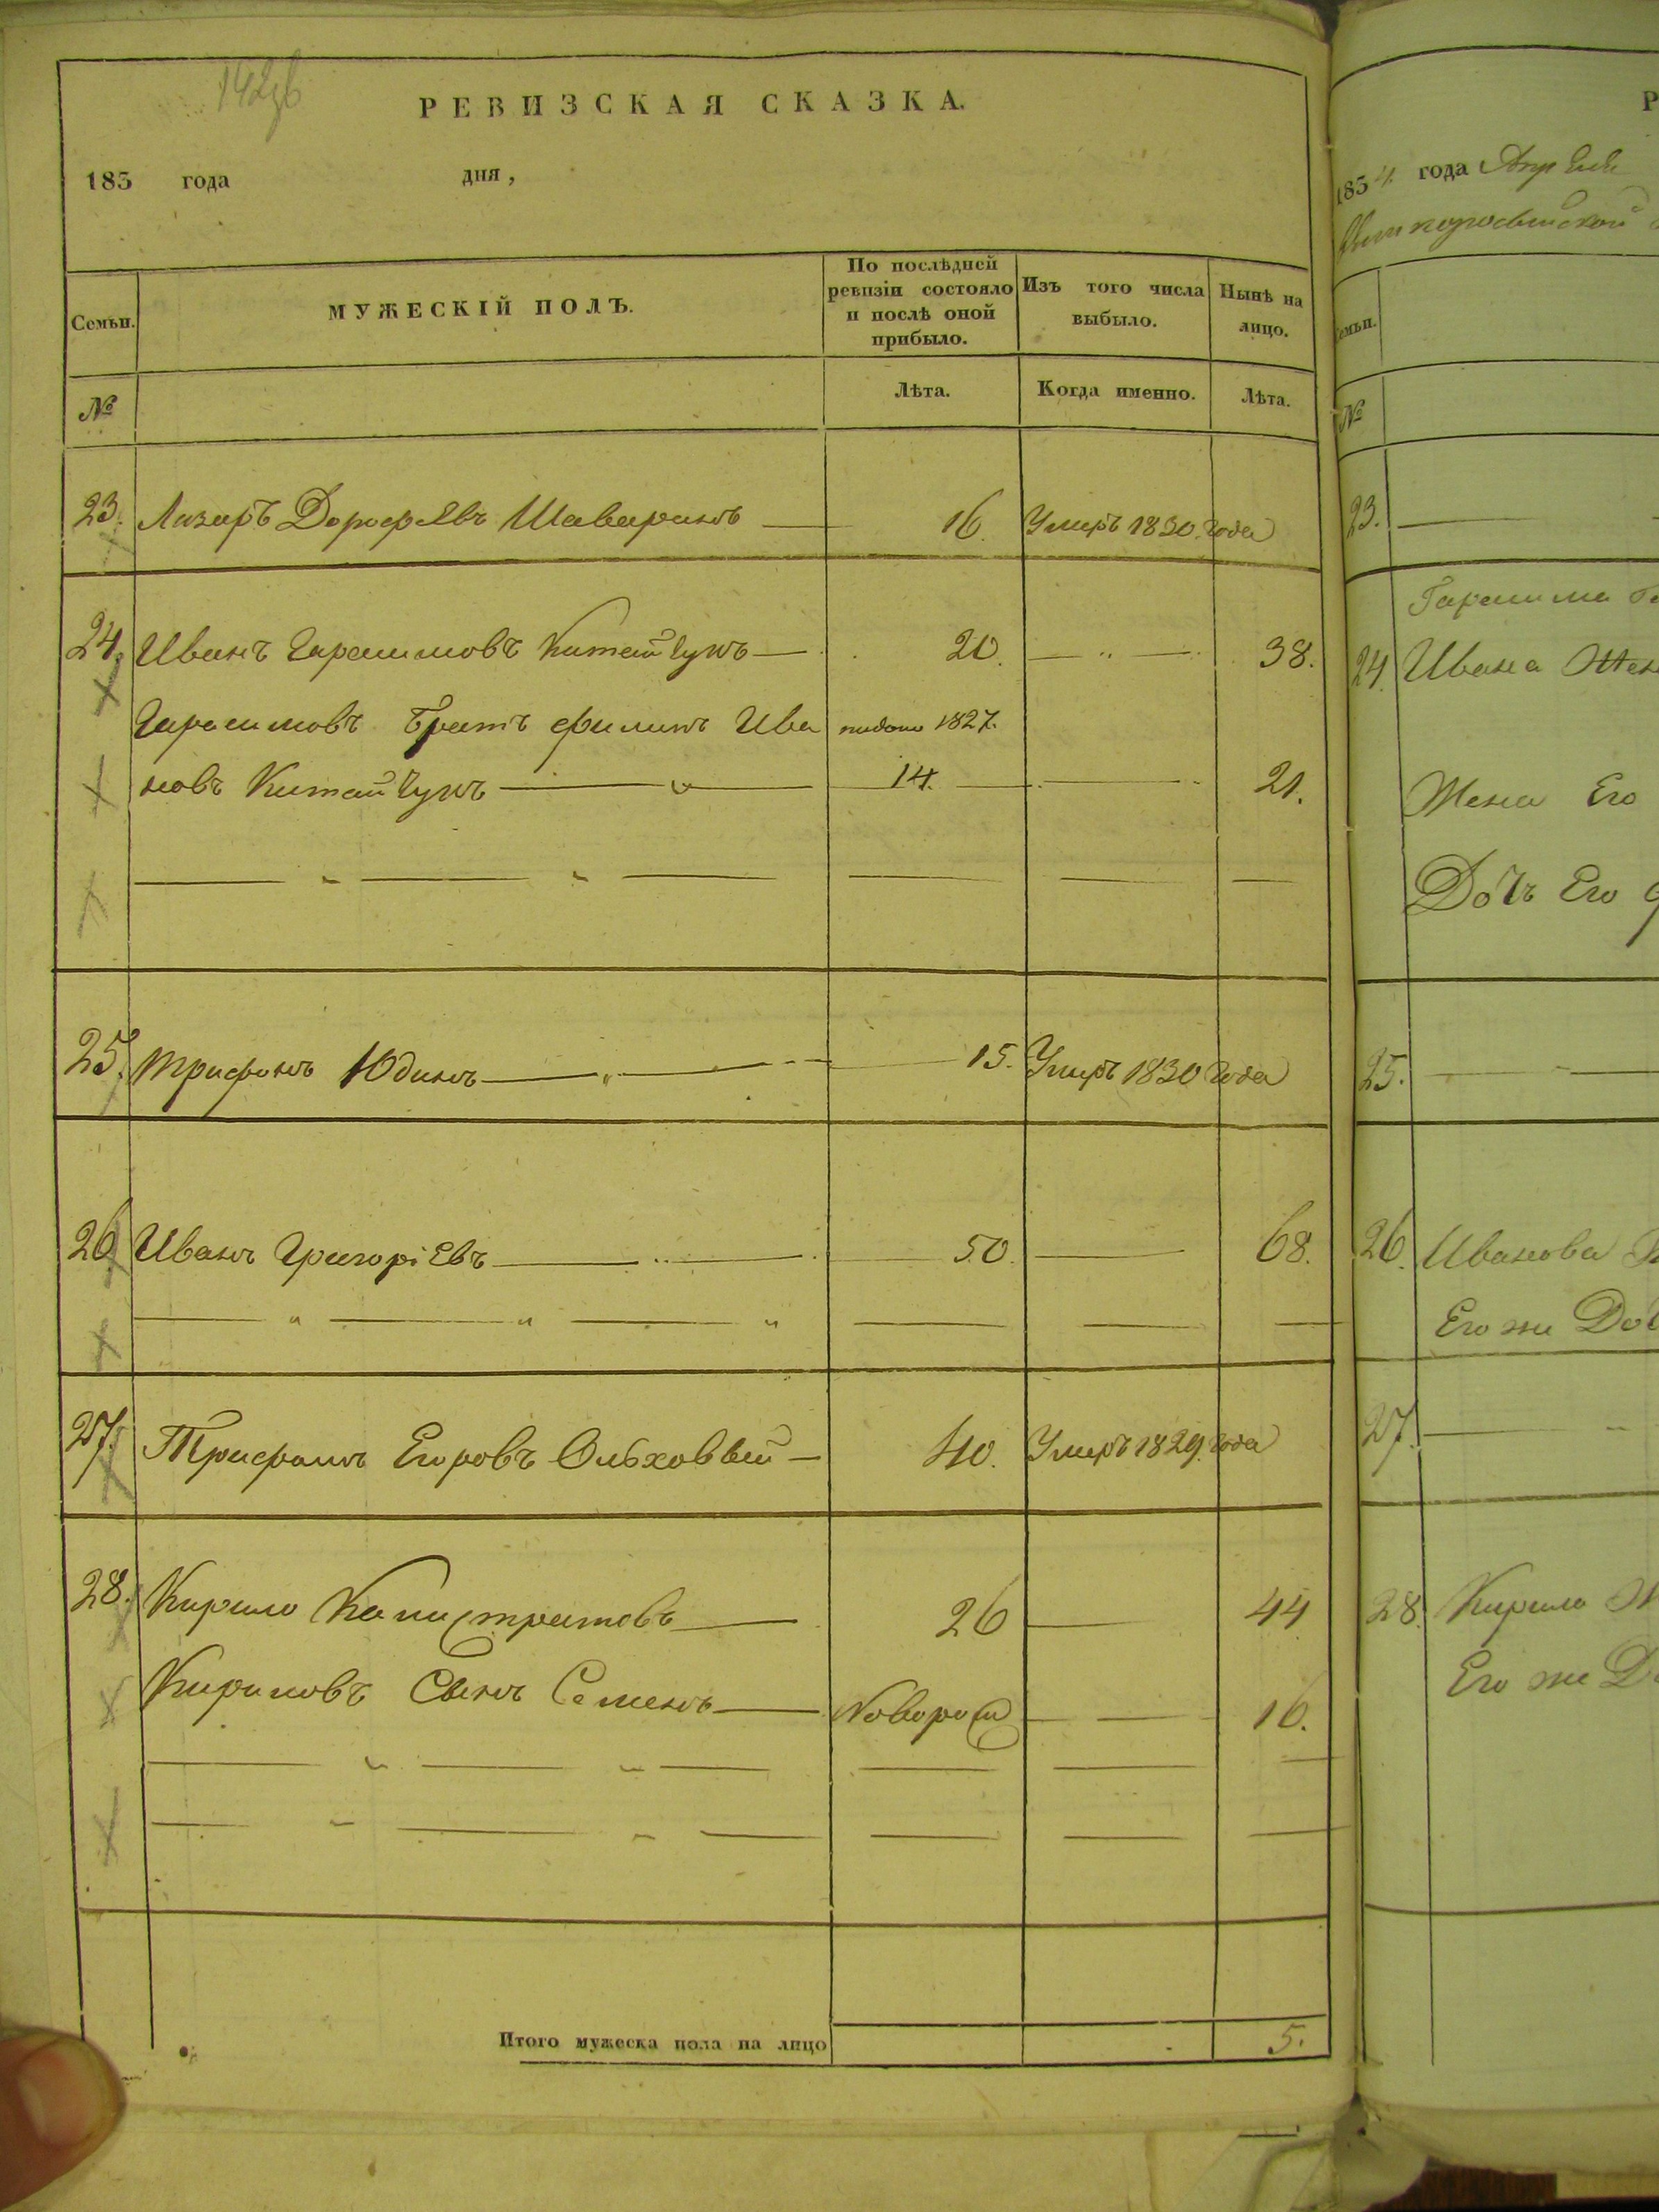 РЕВИЗСКАЯ СКАЗКА.
183 года дня,
Семьи.
МУЖЕСКІЙ ПОЛЪ.
По послѣдней
ревизіи состояло
и послѣ оной
прибыло.
Изъ того числа
выбыло.
Нынѣ на
лицо.
№
Лѣта.
Когда именно.
Лѣта.
23. Лазарь Дорофѣевъ 16. Умеръ 1830. Года
24. Иванъ Гарасимовъ Китайчукъ 20. 38.
Гарасимовъ Братъ Филипъ Ива 1827.
новъ Китайчукъ 14. 21.
25. Трифонъ Юдинъ 15. Умеръ 1830 Года
26. Иванъ Григоріевъ 50. 68.
27. Трифонъ Егоровъ Ольховый 40. Умеръ 1829. Года
28. Кирило Калистратовъ 26 44
Кириловъ Сынъ Семенъ Новорож 16.
Итого мужеска пола на лицо 5.
Р
1834. года Апреля
Семьи.
№
23.
24. Ивана Жен
Жена Его
Дочь Его
25.
26. Иванова
Его же Доч
27.
28. Кирила
Его же